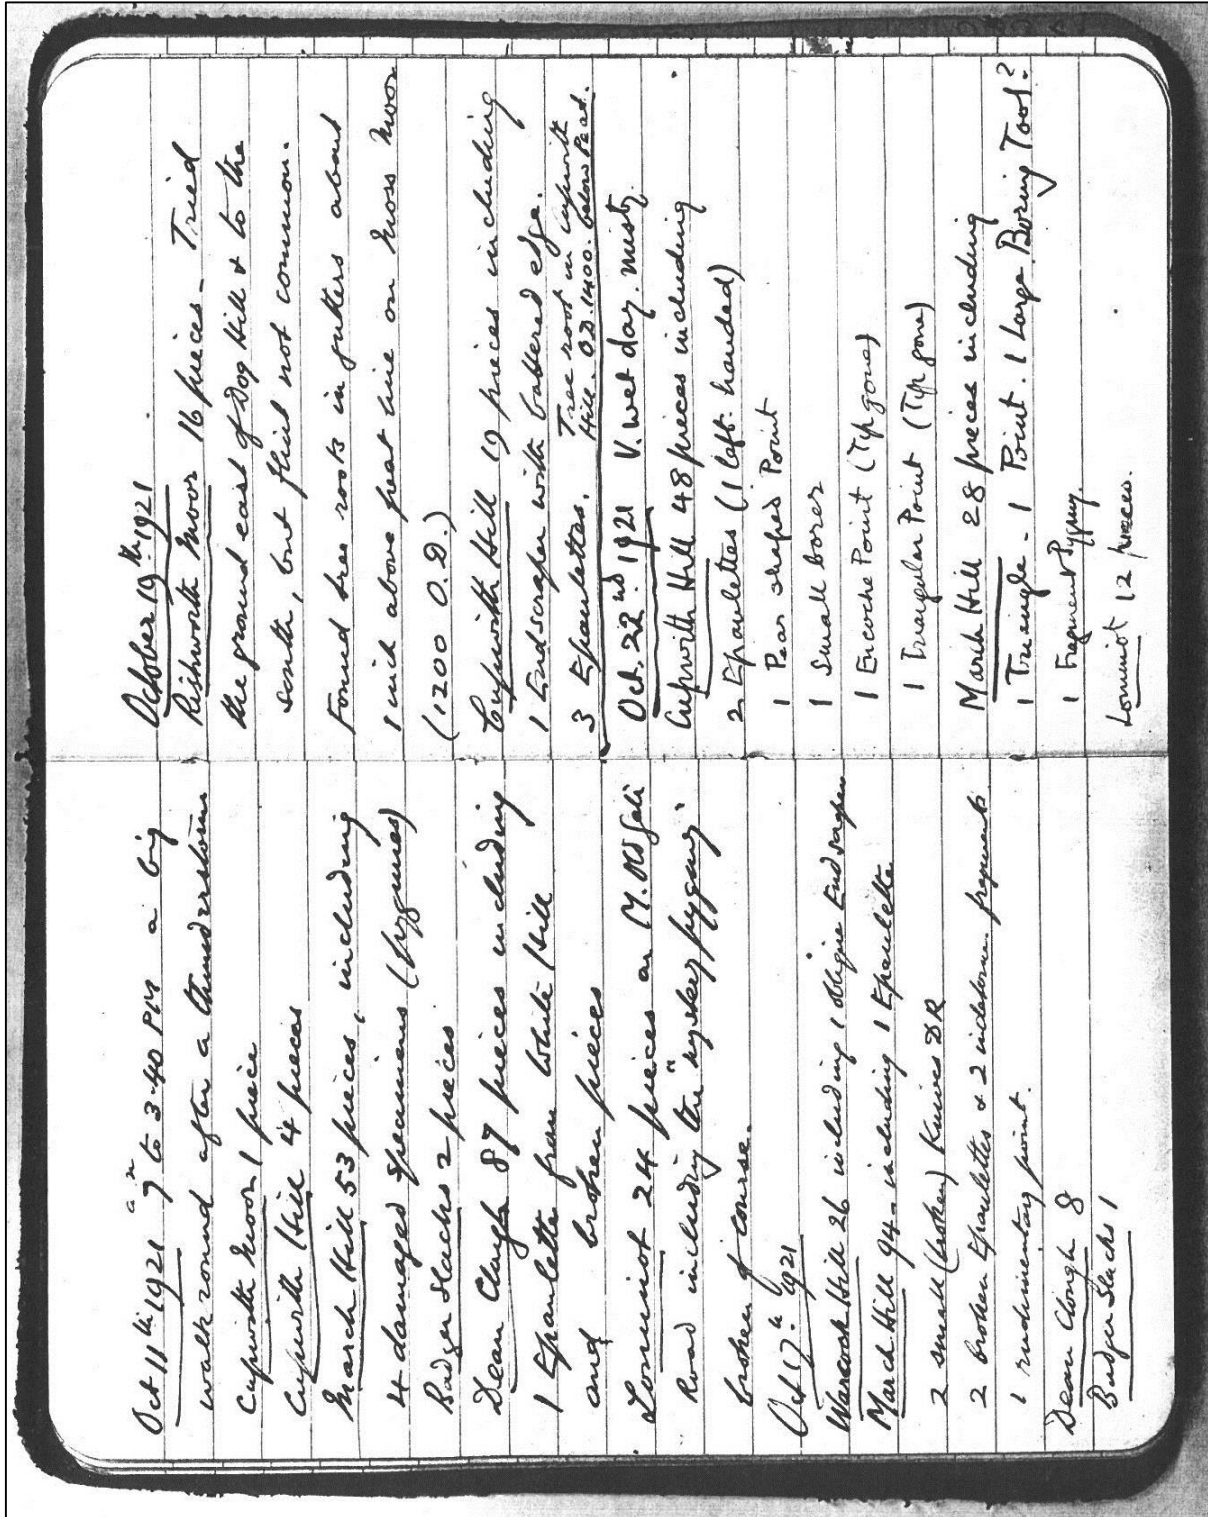 Oct 11th 1921 7 a.m to 3-40 PM a big
walk round after a thunderstorm
Cupwith Moor 1 piece
Cupwith Hill 4 pieces
March Hill 53 pieces, including
4 damaged specimens (pygmies)
Badger Slacks 2 pieces
Dean Clough 87 pieces including
1 Epaulette from White Hill
and broken pieces
Lominot 24 pieces on M. Old Gate
Road including the "pygmy
broken of course.
Oct 17th 1921
Warcock Hill 26 including 1 oblique End scraper
March Hill 94 - including 1 Epaulette
2 small (broken) Knives DR
2 broken Epaulettes & 2 indeterm. fragments
1 rudimentary point.
Dean Clough 8
Badger Slacks 1
October 19th 1921
Rishworth Moor 16 pieces - Tried
the ground east of Dog Hill & to the
south, but flint not common.
Found tree roots in gutters about
1 inch above peat line on Moss Moor
(1200 O.D.)
Cupwith Hill 19 pieces including
1 Endscraper with battered edge.
3 Epaulettes. Tree root in Cupwith
Hill. O.D. 1400. below Peat.
Oct. 22nd 1921 V. wet day. misty.
Cupwith Hill 48 pieces including
2 Epaulettes (1 left handed)
1 Pear shaped Point
1 Small borer
1 Encoche Point (Tip gone)
1 Triangular Point (Tip gone)
March Hill 28 pieces including
1 Triangle. 1 Point. 1 Large Boring Tool?
1 Fragment Pygmy.
Lominot 12 pieces.